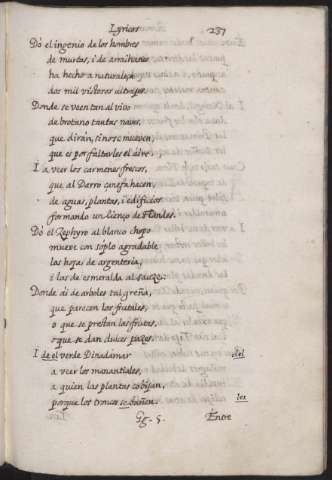 Lyricos 237
Dó el ingenio de los hombres
de murtas, i de arraihanes
ha hecho a naturaleza
dos mil vistosos ultrajes.
Donde se veen tan al vivo
de brotano tantas naves,
que dirán, si no se mueven,
que es por faltarles el aire.
I a veer los carmenes frescos,
que al Darro cenefa hacen,
de aguas, plantas, i edificios
formando un lienço de Flandes.
Dó el Zephyro al blanco chopo
mueve con soplo agradable
las hojas de argenteria,
i las de esmeralda al sauze.
Donde ái de arboles tal greña,
que parecen los frutales,
o que se prestan las frutas,
o que se dan dulces pazes.
I de el verde Dinadámar del
a veer los manantiales,
a quien las plantas cobijan,
porque los troncos se bañen. los
Gg. 5. Entre